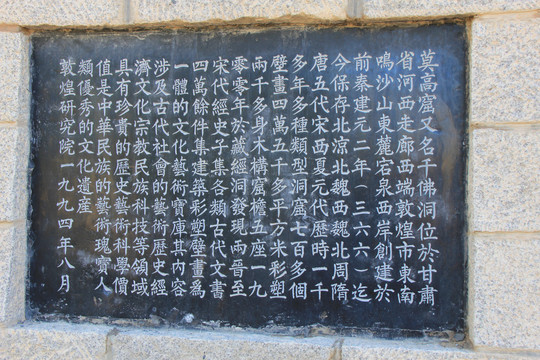 莫高窟又名千佛洞位於甘肅
省河西走廊西端敦煌市東南
鳴沙山東麓宕泉西岸創建於
前秦建元二年(三六六)迄
今保存北涼北魏西魏北周隋
唐五代宋西夏元代歷時一千
多年多種類型洞窟七百多個
壁畫四萬五千多平方米彩塑
兩千多身木構窟檐五座一九
零零年於藏經洞發現兩晋至
宋代經史子集各類古代文書
四萬餘件集建築彩塑壁畫為
一體的文化藝術寶庫其内容
涉及古代社會的藝術歷史經
濟文化宗教民族科技等領域
具有珍貴的歷史藝術科學價
值是中華民族的藝術瑰寶人
類優秀的文化遺産
敦煌研究院一九九四年八月